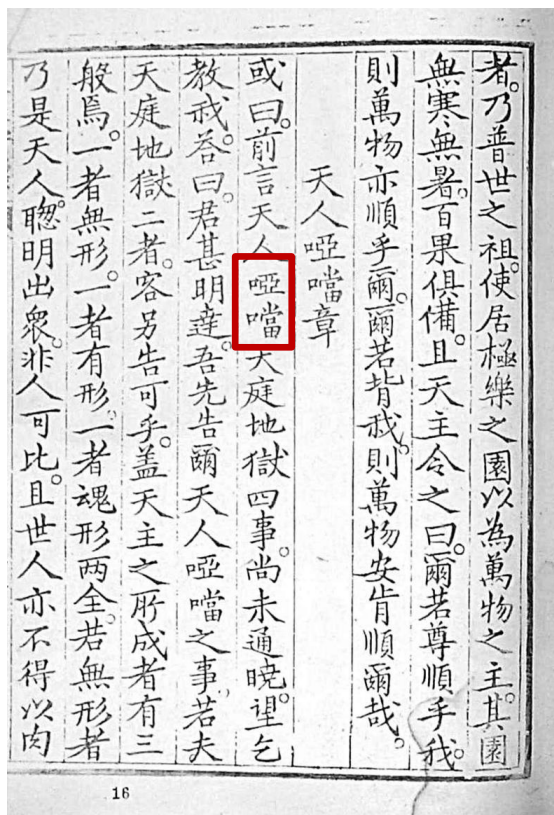 者。乃普世之祖。使居極樂之園以為萬物之主。其園
無寒無暑。百果俱備。且天主令之曰。爾若尊順乎我。
則萬物亦順乎爾。爾若背我。則萬物安肯順爾哉。
天人啞噹章
或曰。前言天人啞噹天庭地獄四事。尚未通曉。望乞
教我。答曰。君甚明達。吾先告爾天人啞噹之事。若夫
天庭地獄二者。容另告可乎。盖天主之所成者有三
般焉。一者無形。一者有形。一者魂形两全。若無形者
乃是天人。聰明出衆。非人可比。且世人亦不得以肉
16